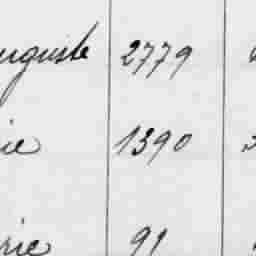 uguste 2779
ie 1390
rie 91